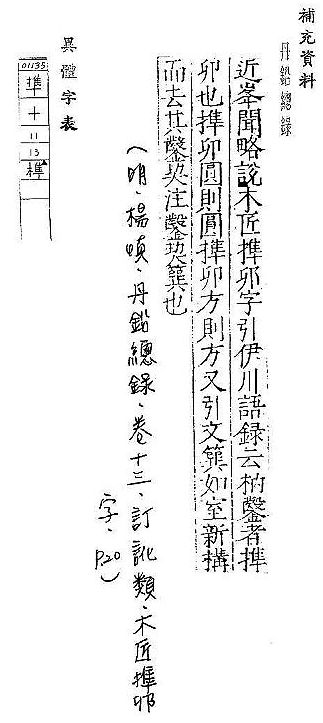 補充資料
丹鉛總錄
近峯聞略說木匠榫卯字引伊川語錄云枘鑿者榫
卯也榫卯圓則圓榫卯方則方又引文簨如室新搆
而去其鑿契注鑿契簨也
(明·楊慎·丹鉛總錄·卷十三·訂訛類·木匠榫卯
字·P.20)
異體字表
01135
準
十
11
13
榫